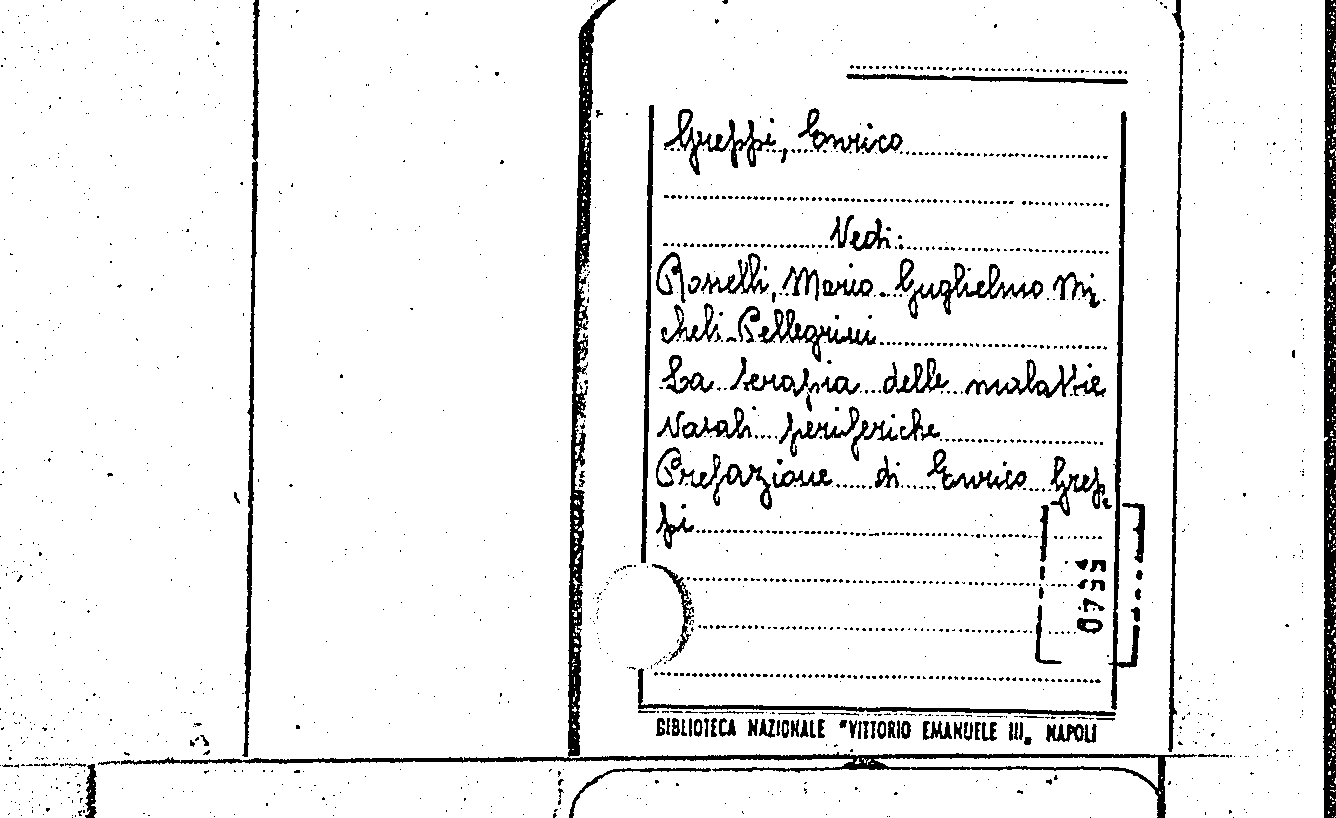 Greppi, Enrico
Vedi:
Rosselli, Mario. Guglielmo Mi
cheli-Pellegrini
La terapia delle malattie
vasali periferiche
Prefazione di Enrico Grep
pi
BIBLIOTECA NAZIONALE "VITTORIO EMANUELE III„ NAPOLI